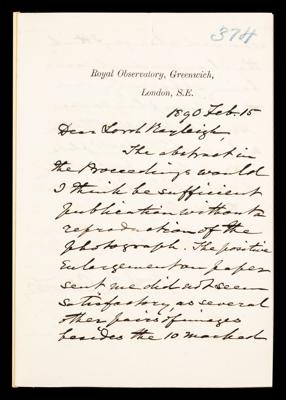 374
Royal Observatory, Greenwich,
London, S.E.
1890 Feb. 15
Dear Lord Rayleigh,
The abstract in
the Proceedings would
I think be sufficient
publication without
reproduction of the
photograph. The positive
enlargement on paper
sent me did not seem
satisfactory, as several
other pairs of images
besides the 10 marked